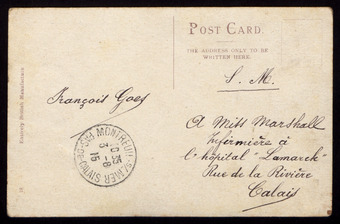 POST CARD.
THE ADDRESS ONLY TO BE
WRITTEN HERE.
S. M.
François Goes
A Miss Marshall
Infirmière à
l'hôpital "Lamarck"
Rue de la Rivière
Calais
MONTREUIL-S-MER
PAS-DE-CALAIS
3-8
15
Entirely British Manufacture